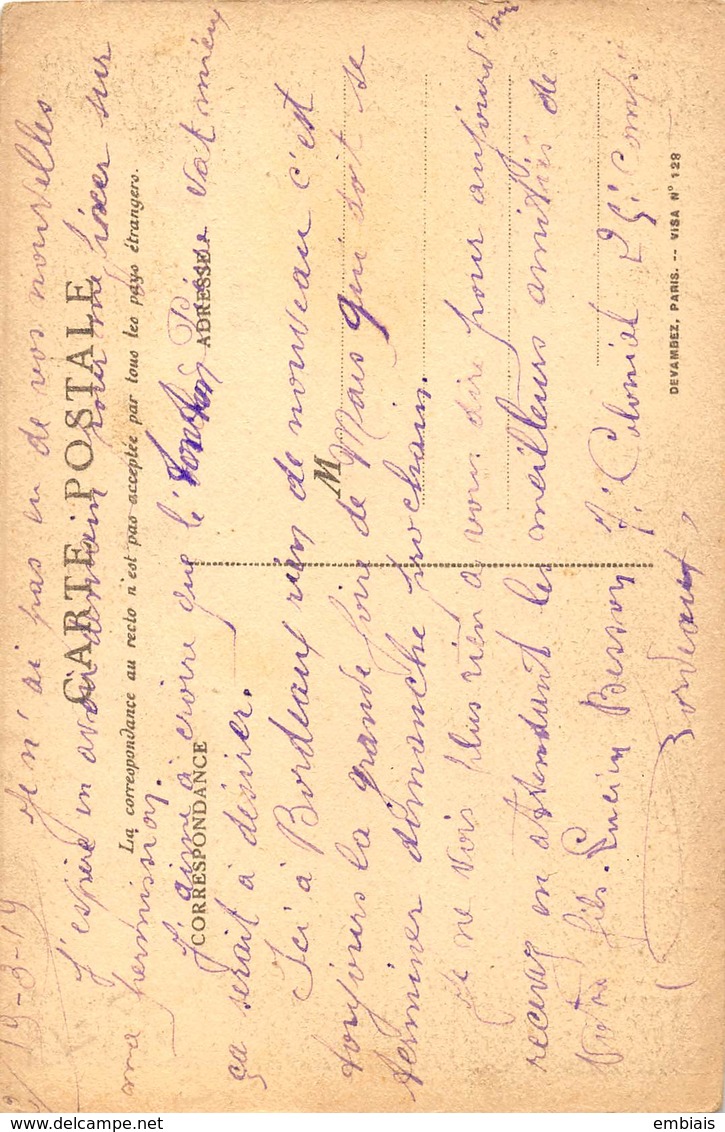 19-3-19 Je n'ai pas eu de vos nouvelles
J'espère en avoir demain pour me fixer sur
ma permission.
J'aime à croire que le Pierre vat mieux
ça serait à désirer.
Ici à Bordeaux rien de nouveau c'est
toujours la grande foire de Mars qui doit se
terminer dimanche prochain.
Je ne vois plus rien à vous dire pour aujourd'hui
recevez en attendant les meilleurs amitiés de
Votre fils. Lucien Besson 7e Colonial 25e Comp
Bordeaux
CARTE POSTALE
La correspondance au recto n'est pas acceptée par tous les pays étrangers.
CORRESPONDANCE
ADRESSE
M
DEVAMBEZ, PARIS. -- VISA N° 128
embiais